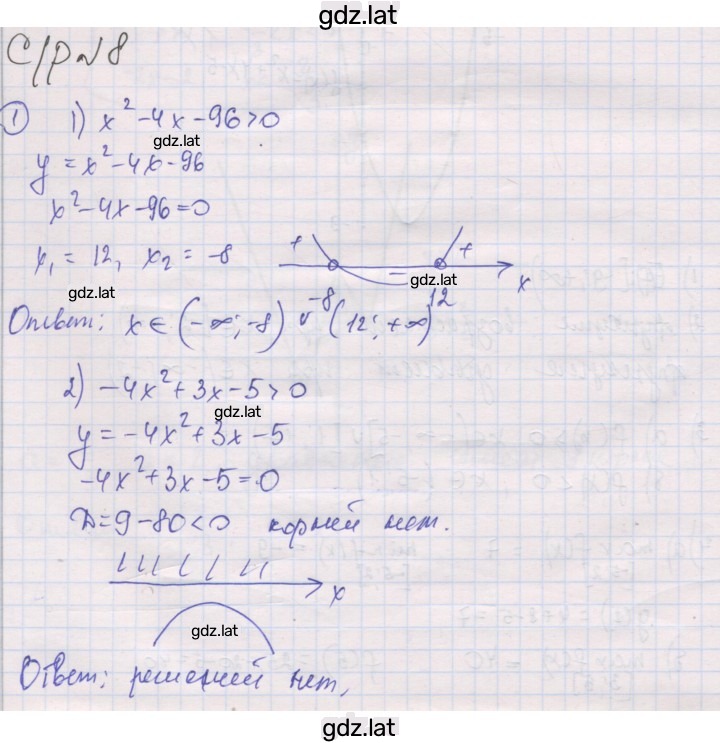 gdz.lat
С/р №8
① 1) x² - 4x - 96 > 0
gdz.lat
y = x² - 4x - 96
x² - 4x - 96 = 0
x₁ = 12, x₂ = -8
+ - + x
gdz.lat
gdz.lat
-8 12
Ответ: x ∈ (-∞; -8) ∪ (12; +∞)
2) -4x² + 3x - 5 > 0
gdz.lat
y = -4x² + 3x - 5
-4x² + 3x - 5 = 0
Д = 9 - 80 < 0 корней нет.
x
gdz.lat
Ответ: решений нет.
gdz.lat